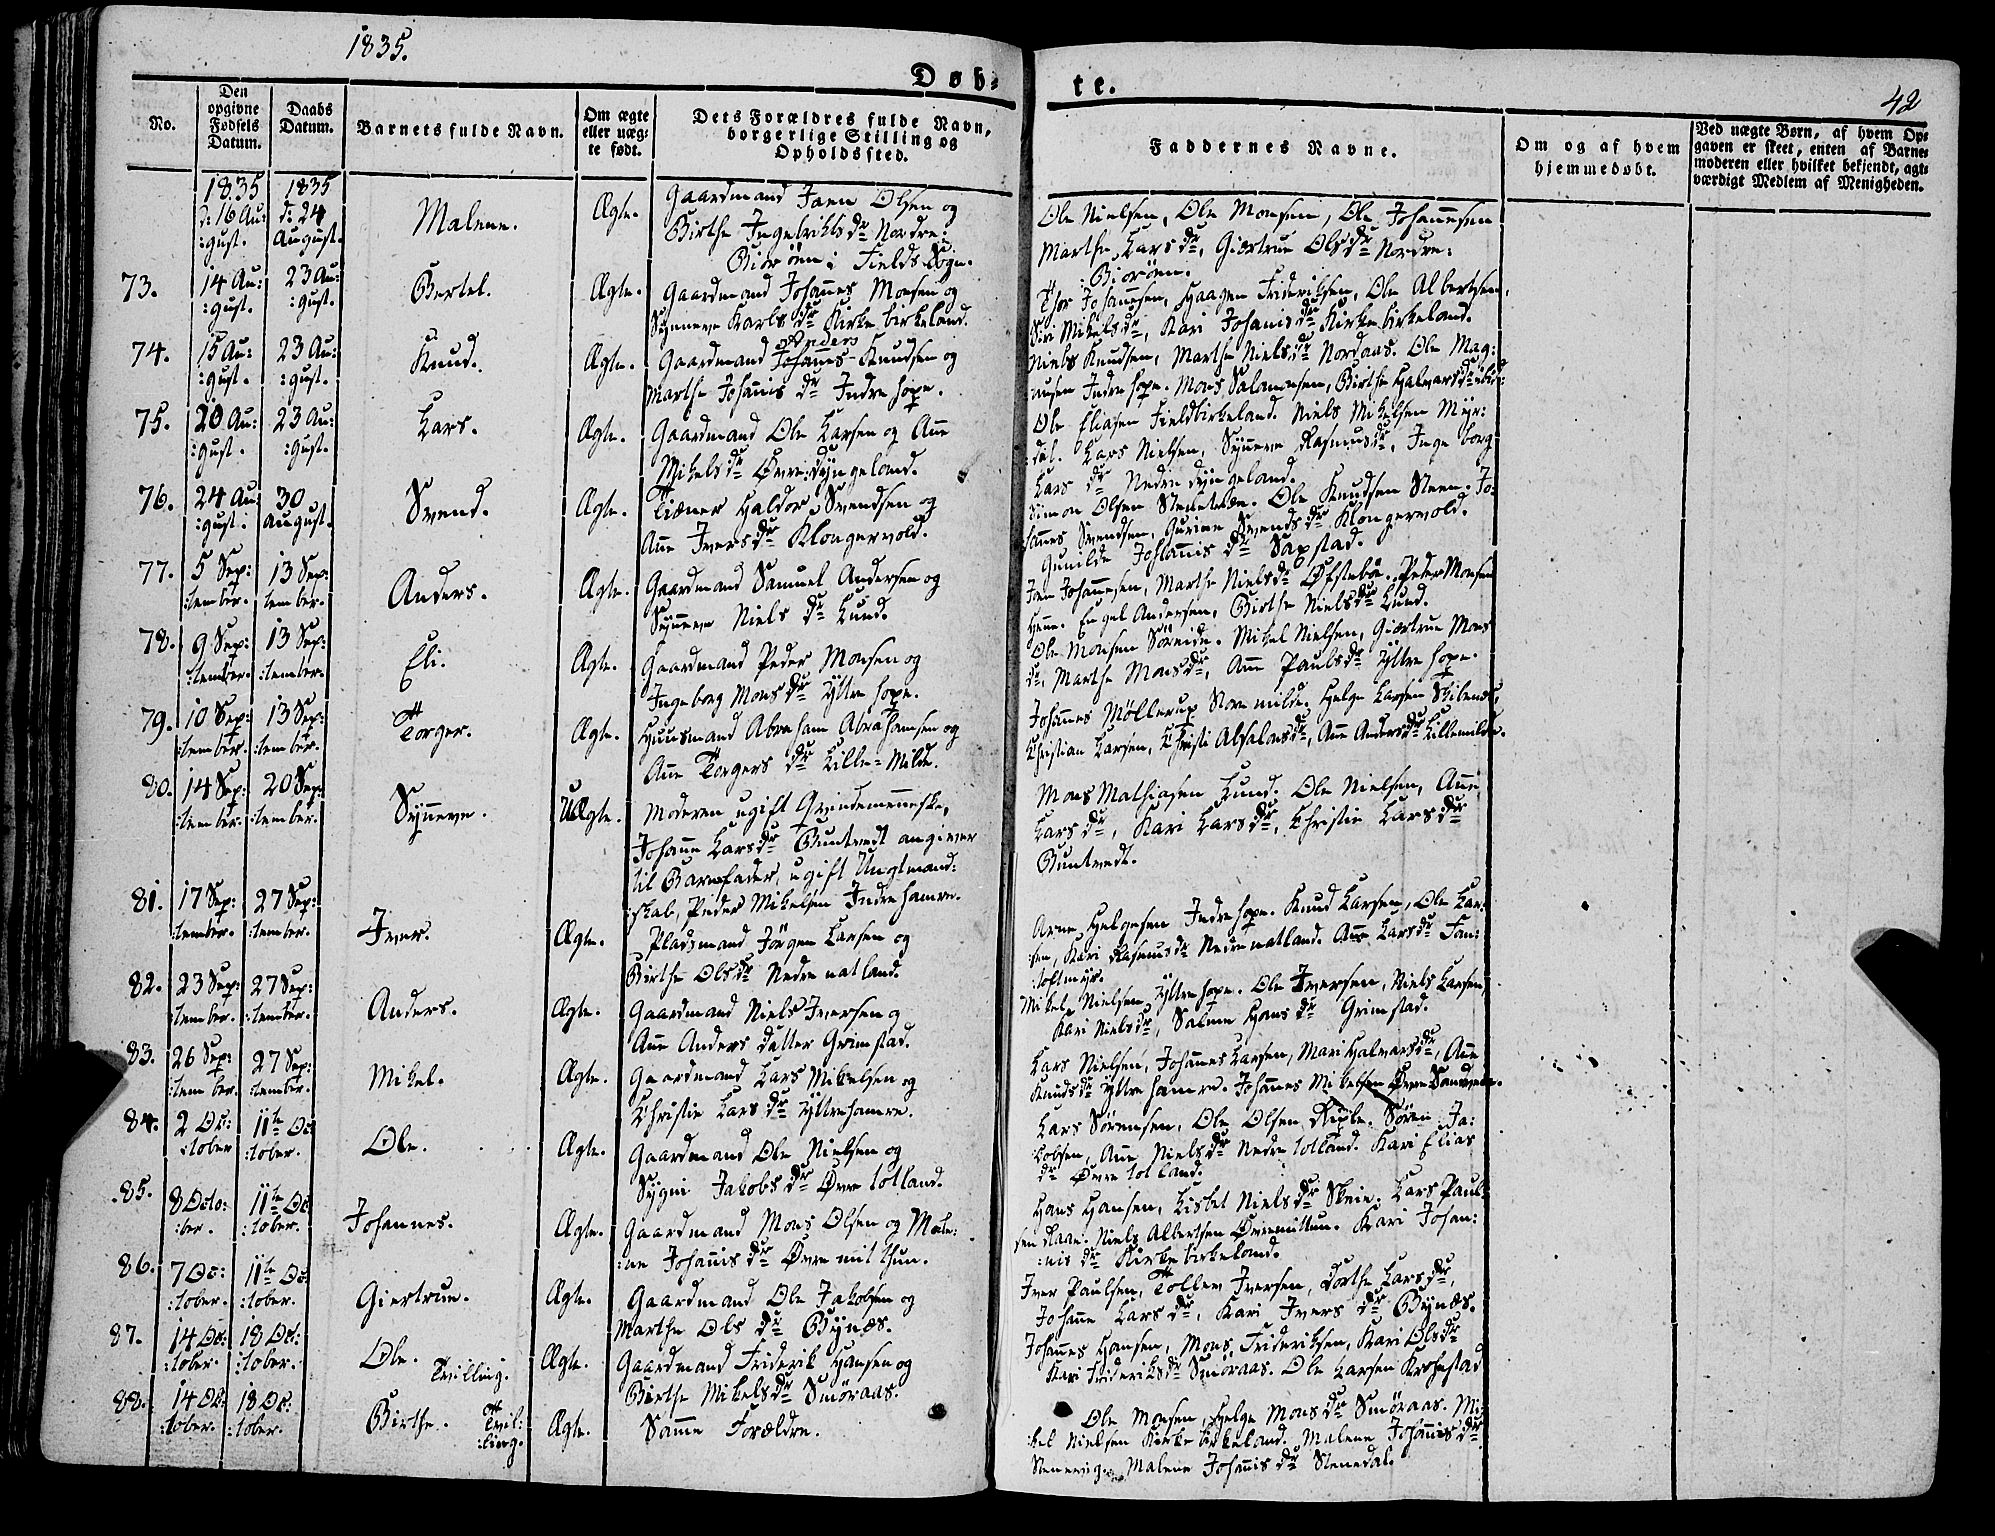 1835.
Døb-
te.
42
No.
Den opgivne Fødsels Datum.
Daabs Datum.
Barnets fulde Navn.
Om ægte eller uæg-te født.
Dets Forældres fulde Navn, borgerlige Stilling og Opholdssted.
Faddernes Navne.
Om og af hvem hjemmedøbt.
Ved uægte Børn, af hvem Op-gaven er skeet, enten af Barne-moderen eller hvilket bekjendt, agt-værdigt Medlem af Menigheden.
1835 d: 16 Au:gust. 1835 d: 24 August. Malene. Ægte. Gaardmand Joen Olsen og
Birthe Ingebrikts dr Nordre:
Biorøen i Fields Sogn.
Ole Nielsen, Ole Monsen, Ole Johannesen
Marthe Lars dr, Giertrue Ols dr Nordre:
Biorøen.
73. 14 Au:gust. 23 Au:gust. Bertel. Ægte. Gaardmand Johannes Monsen og
Synneve Karls dr Kirkebirkeland.
Thor Johannesen, Haagen Frideriksen, Ole Albertsen,
Siri Mikels dr, Kari Johanis dr Kirkebirkeland.
74. 15 Au:gust. 23 Au:gust. Knud. Ægte. Gaardmand Johannes Anders Knudsen og
Marthe Johanis dr Indre hope.
Niels Knudsen, Marthe Niels dr Nordaas. Ole Mag:
nusen Indre hope. Mons Salamonsen, Birthe Halvars dr
75. 20 Au:gust. 23 Au:gust. Lars. Ægte. Gaardmand Ole Larsen og Ane
Mikels dr Øvre dyngeland.
Ole Eliasen Fieldbirkeland. Niels Mikelsen Myr:
dal. Lars Nielsen, Synneve Rasmus dr, Inge borg
Lars dr Nedre dyngeland.
76. 24 Au:gust. 30 August. Svend. Ægte. Tiener Haldor Svendsen og
Ane Ivers dr Klongervold.
Simon Olsen Stenetræe. Ole Knudsen Steen. Jo:
hannes Svendsen, Gurine Svends dr Klongervold.
Gunilde Johanis dr Sapstad.
77. 5 Sep:tember. 13 Sep:tember. Anders. Ægte. Gaardmand Samuel Andersen og
Synneve Niels dr Lund.
Joen Johannesen, Marthe Niels dr Øfstebøe. Peder Monsen
Henne. Engel Andersen, Birthe Niels dr Lund.
78. 9 Sep:tember. 13 Sep:tember. Eli. Ægte. Gaardmand Peder Monsen og
Ingeborg Mons dr Yttre hope.
Ole Monsen Søreide. Mikel Nielsen, Giertrue Mons
dr, Marthe Mons dr, Ane Pauls dr Yttre hope.
79. 10 Sep:tember. 13 Sep:tember. Torger. Ægte. Huusmand Abraham Abrahamsen og
Ane Torgers dr Lille-Milde.
Johannes Møllerup Store milde. Helge Larsen Skibenes,
Christian Larsen, Christi Absalons dr, Ane Anders dr Lillemilde.
80. 14 Sep:tember. 20 Sep:tember. Synneve. UÆgte. Moderen ugift Qvindemenneske,
Johanne Lars dr Buntvedt angiver
til Barnefader, ugift Ungtmand:
skab, Peder Mikelsen Indre hamre.
Mons Mathiasen Lund. Ole Nielsen, Ane
Lars dr, Kari Lars dr, Christie Lars dr
Buntvedt.
81. 17 Sep:tember. 27 Sep:tember. Iver. Ægte. Pladsmand Jörgen Larsen og
Birthe Ols dr Nedre natland.
Arne Helgesen Indre hope. Knud Larsen, Ole Lar:
sen, Kari Rasmus dr Nedre natland. Ane Lars dr Fan:
toftmyr.
82. 23 Sep:tember. 27 Sep:tember. Anders. Ægte. Gaardmand Niels Iversen og
Ane Anders datter Grimstad.
Mikel Nielsen Yttre hope. Ole Iversen, Niels Larsen,
Kari Niels dr, Salme Hans dr Grimstad.
83. 26 Sep:tember. 27 Sep:tember. Mikel. Ægte. Gaardmand Lars Mikelsen og
Christie Lars dr Yttre hamre.
Lars Nielsen, Johannes Larsen, Mari Halvars dr, Ane
Knuds dr Yttre hamre. Johannes Mikelsen Øvre
84. 2 Oc:tober 11te Oc:tober. Ole. Ægte. Gaardmand Ole Nielsen og
Sygni Jakobs dr Øvre totland.
Lars Sørensen, Ole Olsen Riple. Søren Ja:
kobsen, Ane Niels dr Nedre totland. Kari Elias
dr Øvre totland.
85. 8 Octo:ber. 11te Oc:tober. Johannes. Ægte. Gaardmand Mons Olsen og Male:
ne Johanis dr Øvre mitthun.
Hans Hansen, Lisbet Niels dr Skeie. Lars Paul:
sen Raae. Niels Albertsen Øvremittun. Kari Johan:
nis dr Kirkebirkeland.
86. 7 Oc:tober. 11te Oc:tober. Giertrue. Ægte. Gaardmand Ole Jakobsen og
Marthe Ols dr Bynæs.
Iver Paulsen, Tollev Iversen, Dorthe Lars dr,
Johanne Lars dr, Kari Ivers dr Bynæs.
87. 14 Oc:tober. 18 Oct:tober. Ole. Tvilling. Ægte. Gaardmand Friderik Hansen og
Birthe Mikels dr Smöraas.
Johannes Hansen, Mons Frideriksen, Kari Ols dr
Kari Frideriks dr Smöraas. Ole Larsen Krohnstad
88. 14 Oc:tober. 18 Oc:tober. Birthe. Tvil:ling. Ægte. Samme Forældre.
Ole Monsen, Helge Mons dr Smöraas. Mi:
kel Nielsen Kirkebirkeland. Malene Johanis dr
Malene Johanis dr Stenedal.